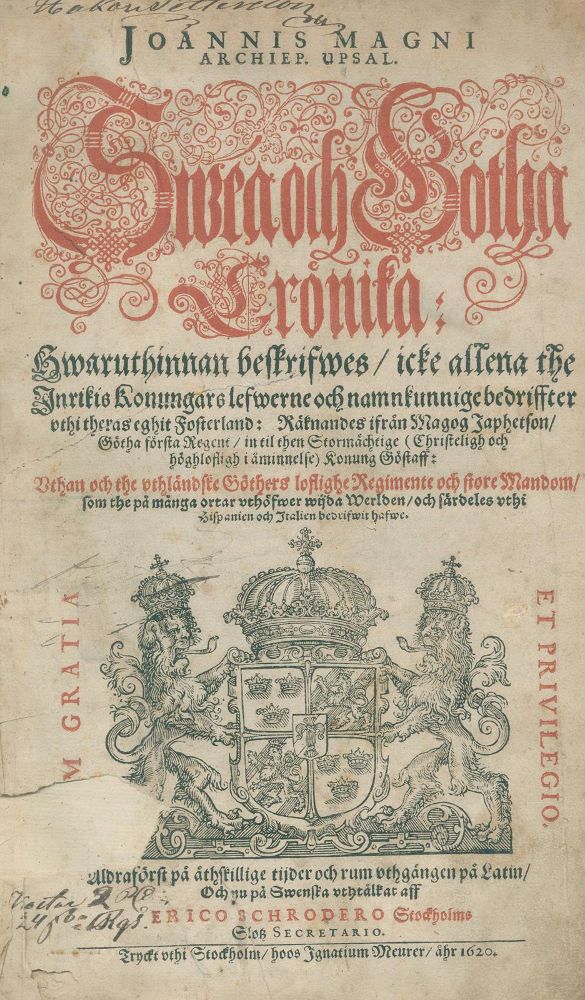 JOANNIS MAGNI
ARCHIEP. UPSAL.
Swea och Götha
Crönika:
Hwaruthinnan beskrifwes / icke allena the
Inrikis Konungars lefwerne och namnkunnige bedriffter
vthi theras eghit Fosterland: Räknandes ifrån Magog Japhetson/
Götha första Regent / in til then Stormächtige (Christeligh och
höghlofligh i åminnelse) Konung Göstaff:
Vthan och the vthländske Göthers loflighe Regimente och store Mandom/
som the på många ortar vthöfwer wijda Werlden / och särdeles vthi
Hispanien och Italien bedrifwit hafwe.
M GRATIA
ET PRIVILEGIO.
Aldraförst på åthskillige tijder och rum vthgången på Latin/
Och nu på Swenska vthtålkat aff
ERICO SCHRODERO Stockholms
Slotz SECRETARIO.
Tryckt vthi Stockholm / hoos Ignatium Meurer / åhr 1620.